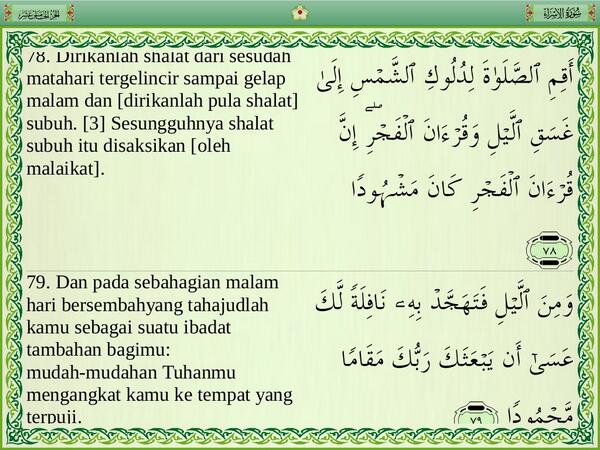 الجزء الخامس عشر
سورة الإسراء
78. Dirikanlah shalat dari sesudah
matahari tergelincir sampai gelap
malam dan [dirikanlah pula shalat]
subuh. [3] Sesungguhnya shalat
subuh itu disaksikan [oleh
malaikat].
أَقِمِ ٱلصَّلَوٰةَ لِدُلُوكِ ٱلشَّمْسِ إِلَىٰ
غَسَقِ ٱلَّيْلِ وَقُرْءَانَ ٱلْفَجْرِ ۖ إِنَّ
قُرْءَانَ ٱلْفَجْرِ كَانَ مَشْهُودًا
٧٨
79. Dan pada sebahagian malam
hari bersembahyang tahajudlah
kamu sebagai suatu ibadat
tambahan bagimu:
mudah-mudahan Tuhanmu
mengangkat kamu ke tempat yang
terpuji.
وَمِنَ ٱلَّيْلِ فَتَهَجَّدْ بِهِۦ نَافِلَةً لَّكَ
عَسَىٰٓ أَن يَبْعَثَكَ رَبُّكَ مَقَامًا
مَّحْمُودًا ٧٩